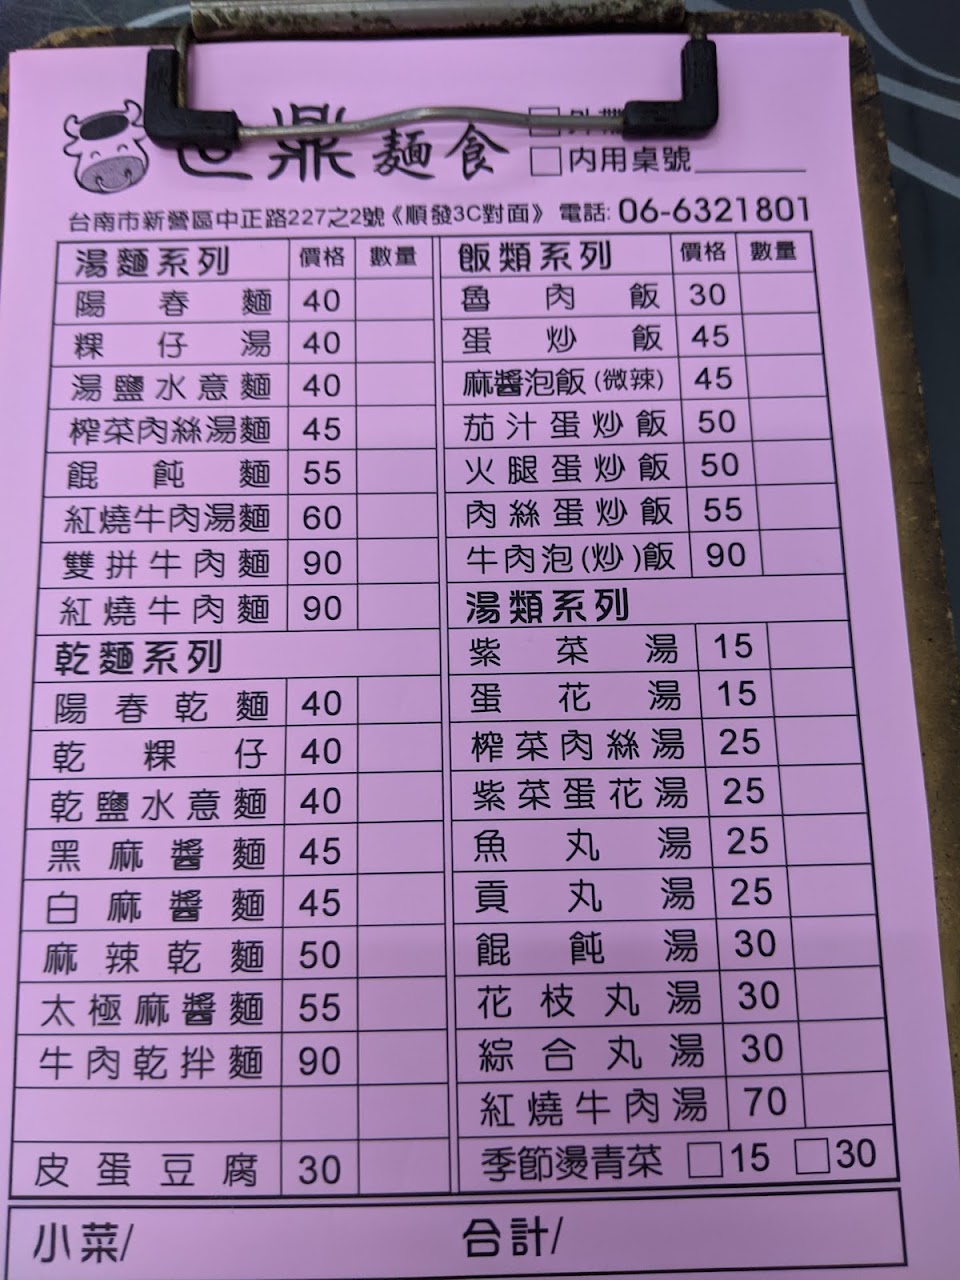 鼎麵食
□內用桌號
台南市新營區中正路227之2號《順發3C對面》 電話: 06-6321801
湯麵系列 價格 數量
陽春麵 40
粿仔湯 40
湯鹽水意麵 40
榨菜肉絲湯麵 45
餛飩麵 55
紅燒牛肉湯麵 60
雙拼牛肉麵 90
紅燒牛肉麵 90
乾麵系列
陽春乾麵 40
乾粿仔 40
乾鹽水意麵 40
黑麻醬麵 45
白麻醬麵 45
麻辣乾麵 50
太極麻醬麵 55
牛肉乾拌麵 90
皮蛋豆腐 30
飯類系列 價格 數量
魯肉飯 30
蛋炒飯 45
麻醬泡飯(微辣) 45
茄汁蛋炒飯 50
火腿蛋炒飯 50
肉絲蛋炒飯 55
牛肉泡(炒)飯 90
湯類系列
紫菜湯 15
蛋花湯 15
榨菜肉絲湯 25
紫菜蛋花湯 25
魚丸湯 25
貢丸湯 25
餛飩湯 30
花枝丸湯 30
綜合丸湯 30
紅燒牛肉湯 70
季節燙青菜 □15 □30
小菜/ 合計/